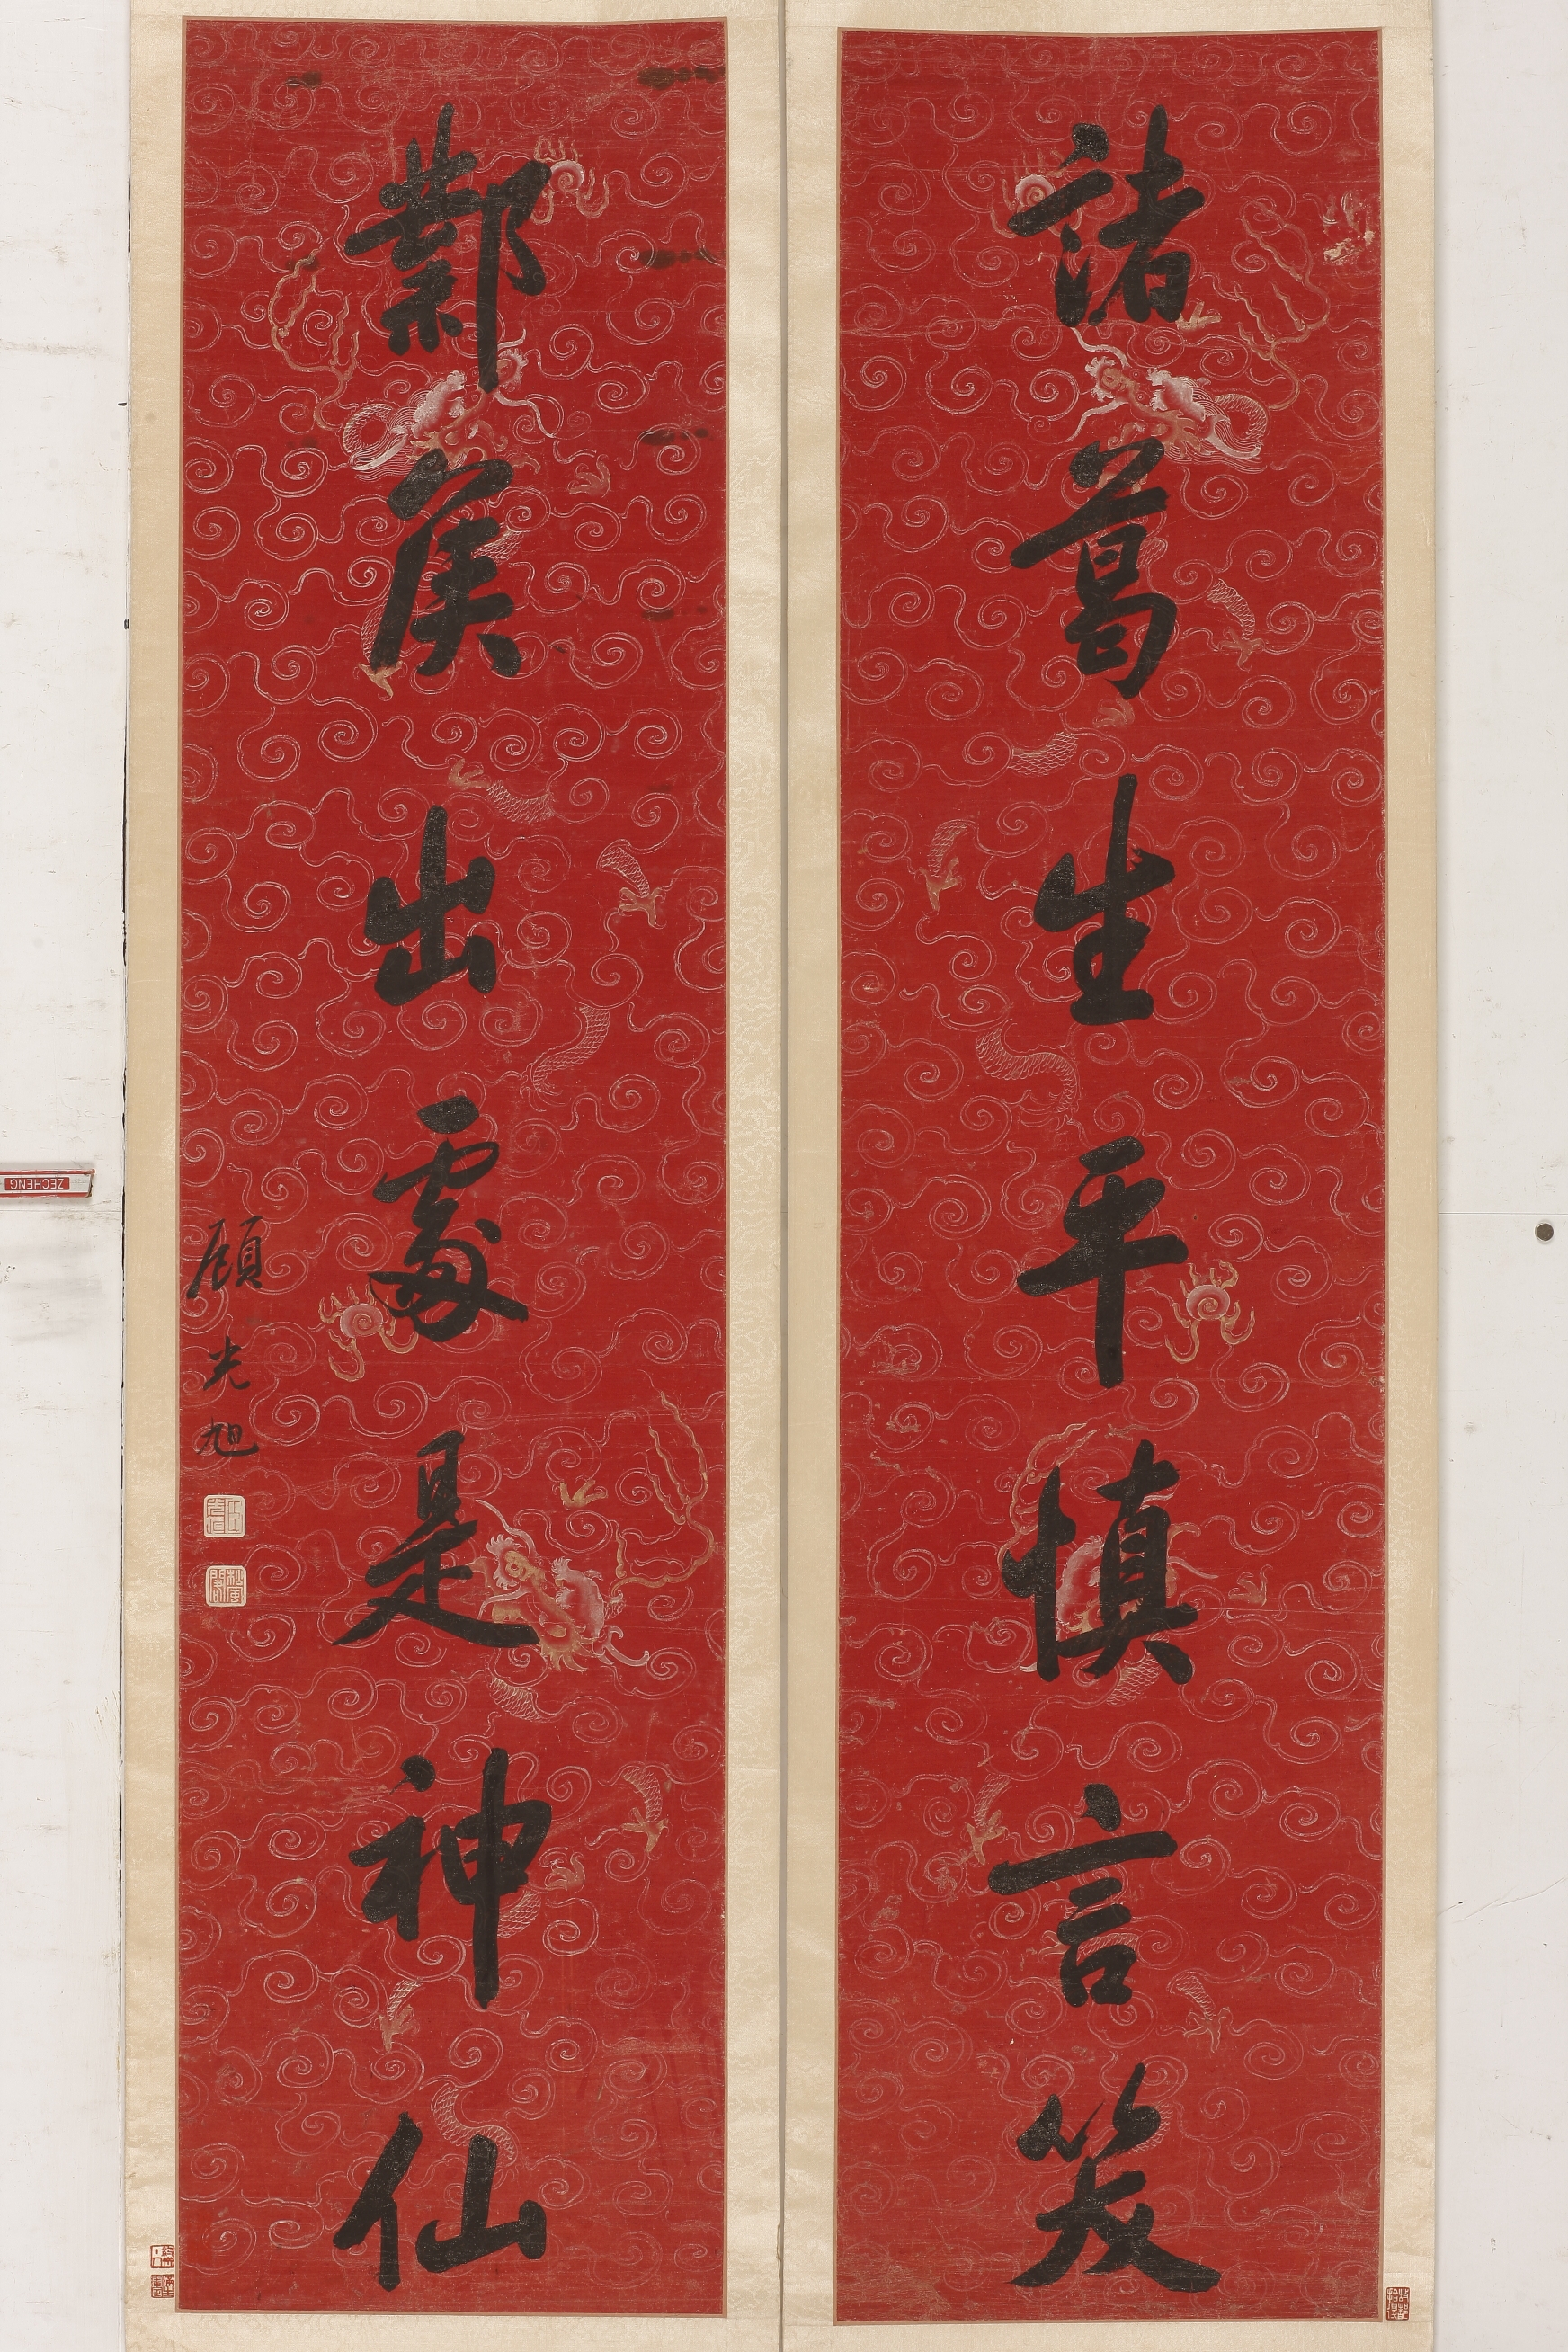 諸葛生平慎言笑
酇侯出處是神仙
顧光旭
ZECHENG